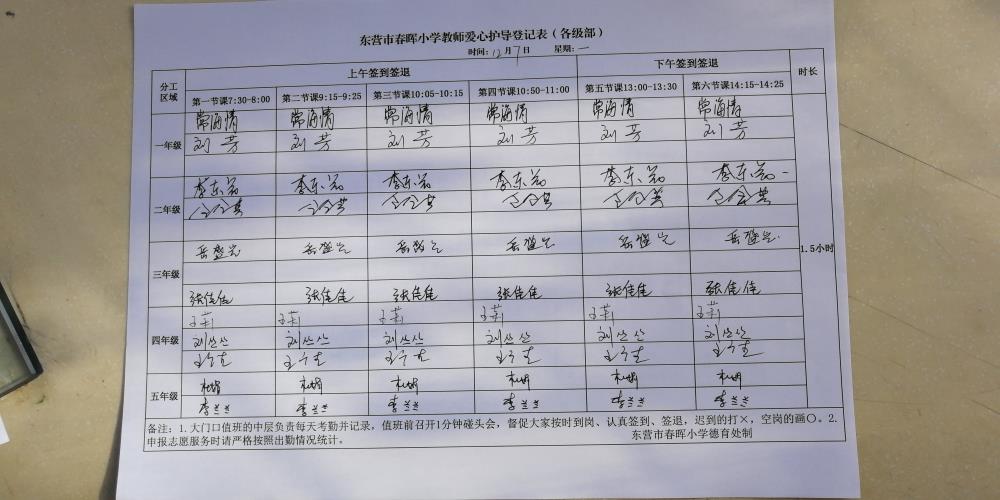 东营市春晖小学教师爱心护导登记表（各级部）
时间：12月7日 星期：一
分工区域 上午签到签退 下午签到签退 时长
第一节课7:30-8:00 第二节课9:15-9:25 第三节课10:05-10:15 第四节课10:50-11:00 第五节课13:00-13:30 第六节课14:15-14:25
常海情 常海情 常海情 常海情 常海情 常海情
一年级 刘芳 刘芳 刘芳 刘芳 刘芳 刘芳
李东 李东 李东 李东 李东 李东
二年级
岳 岳 岳 岳 岳 岳
1.5小时
三年级
张佳佳 张佳佳 张佳佳 张佳佳 张佳佳 张佳佳
王莉 王莉 王莉 王莉 王莉 王莉
四年级 刘丛丛 刘丛丛 刘丛丛 刘丛丛 刘丛丛 刘丛丛
王 王 王 王 王 王
杜娟 杜娟 杜娟 杜娟 杜娟 杜娟
五年级 李兰兰 李兰兰 李兰兰 李兰兰 李兰兰 李兰兰
备注：1.大门口值班的中层负责每天考勤并记录，值班前召开1分钟碰头会，督促大家按时到岗、认真签到、签退，迟到的打×，空岗的画〇。2.
申报志愿服务时请严格按照出勤情况统计。 东营市春晖小学德育处制